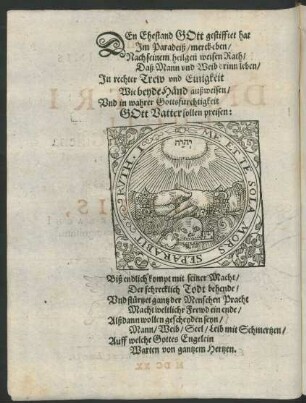 DEn Ehestand GOtt gestifftet hat
Im Paradeiß/ merck eben/
Nach seinem heilgen weisen Rath/
Daß Mann vnd Weib drinn leben/
In rechter Trew vnd Einigkeit
Wie beyde Händ außweisen/
Vnd in wahrer Gottsfurchtigkeit
GOtt Vatter sollen preisen:
יהוה
ME ET TE SOLA MORS SEPARABIT. RUTH.
Biß endlich kompt mit seiner Macht/
Der schrecklich Todt behende/
Vnd stürtzet gantz der Menschen Pracht
Macht weltlicher Frewd ein ende/
Alßdann wollen gescheyden seyn/
Mann/ Weib/ Seel/ Leib mit Schmertzen/
Auff welche Gottes Engelein
Warten von gantzem Hertzen.